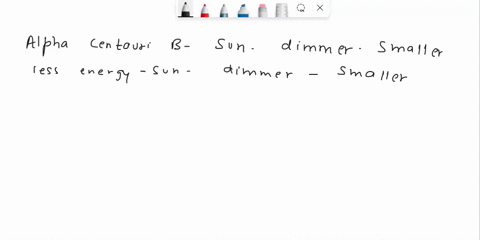 Alpha Centauri B- Sun. dimmer. Smaller
less energy - Sun- dimmer - Smaller